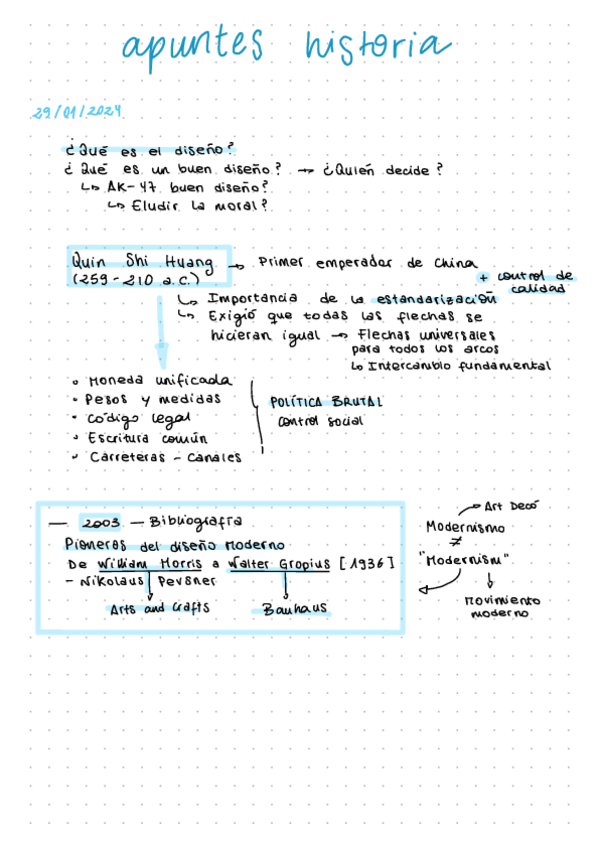 apuntes historia
29/01/2024
¿Qué es el diseño?
¿Qué es un buen diseño? → ¿Quién decide?
↳ AK-47 buen diseño?
↳ Eludir la moral?
Quin Shi Huang → Primer emperador de China
(259-210 a.c.)
+ control de
calidad
↳ Importancia de la estandarización
↳ Exigió que todas las flechas se
hicieran igual → Flechas universales
para todos los arcos
↳ Intercambio fundamental
• Moneda unificada
• Pesos y medidas
• Código legal
• Escritura común
• Carreteras - canales
POLÍTICA BRUTAL
control social
— 2003 — Bibliografía
Pioneros del diseño moderno
De William Morris a Walter Gropius [1936]
- Nikolaus Pevsner
Arts and Crafts
Bauhaus
Art Decó
Modernismo
≠
"Modernism"
Movimiento
moderno